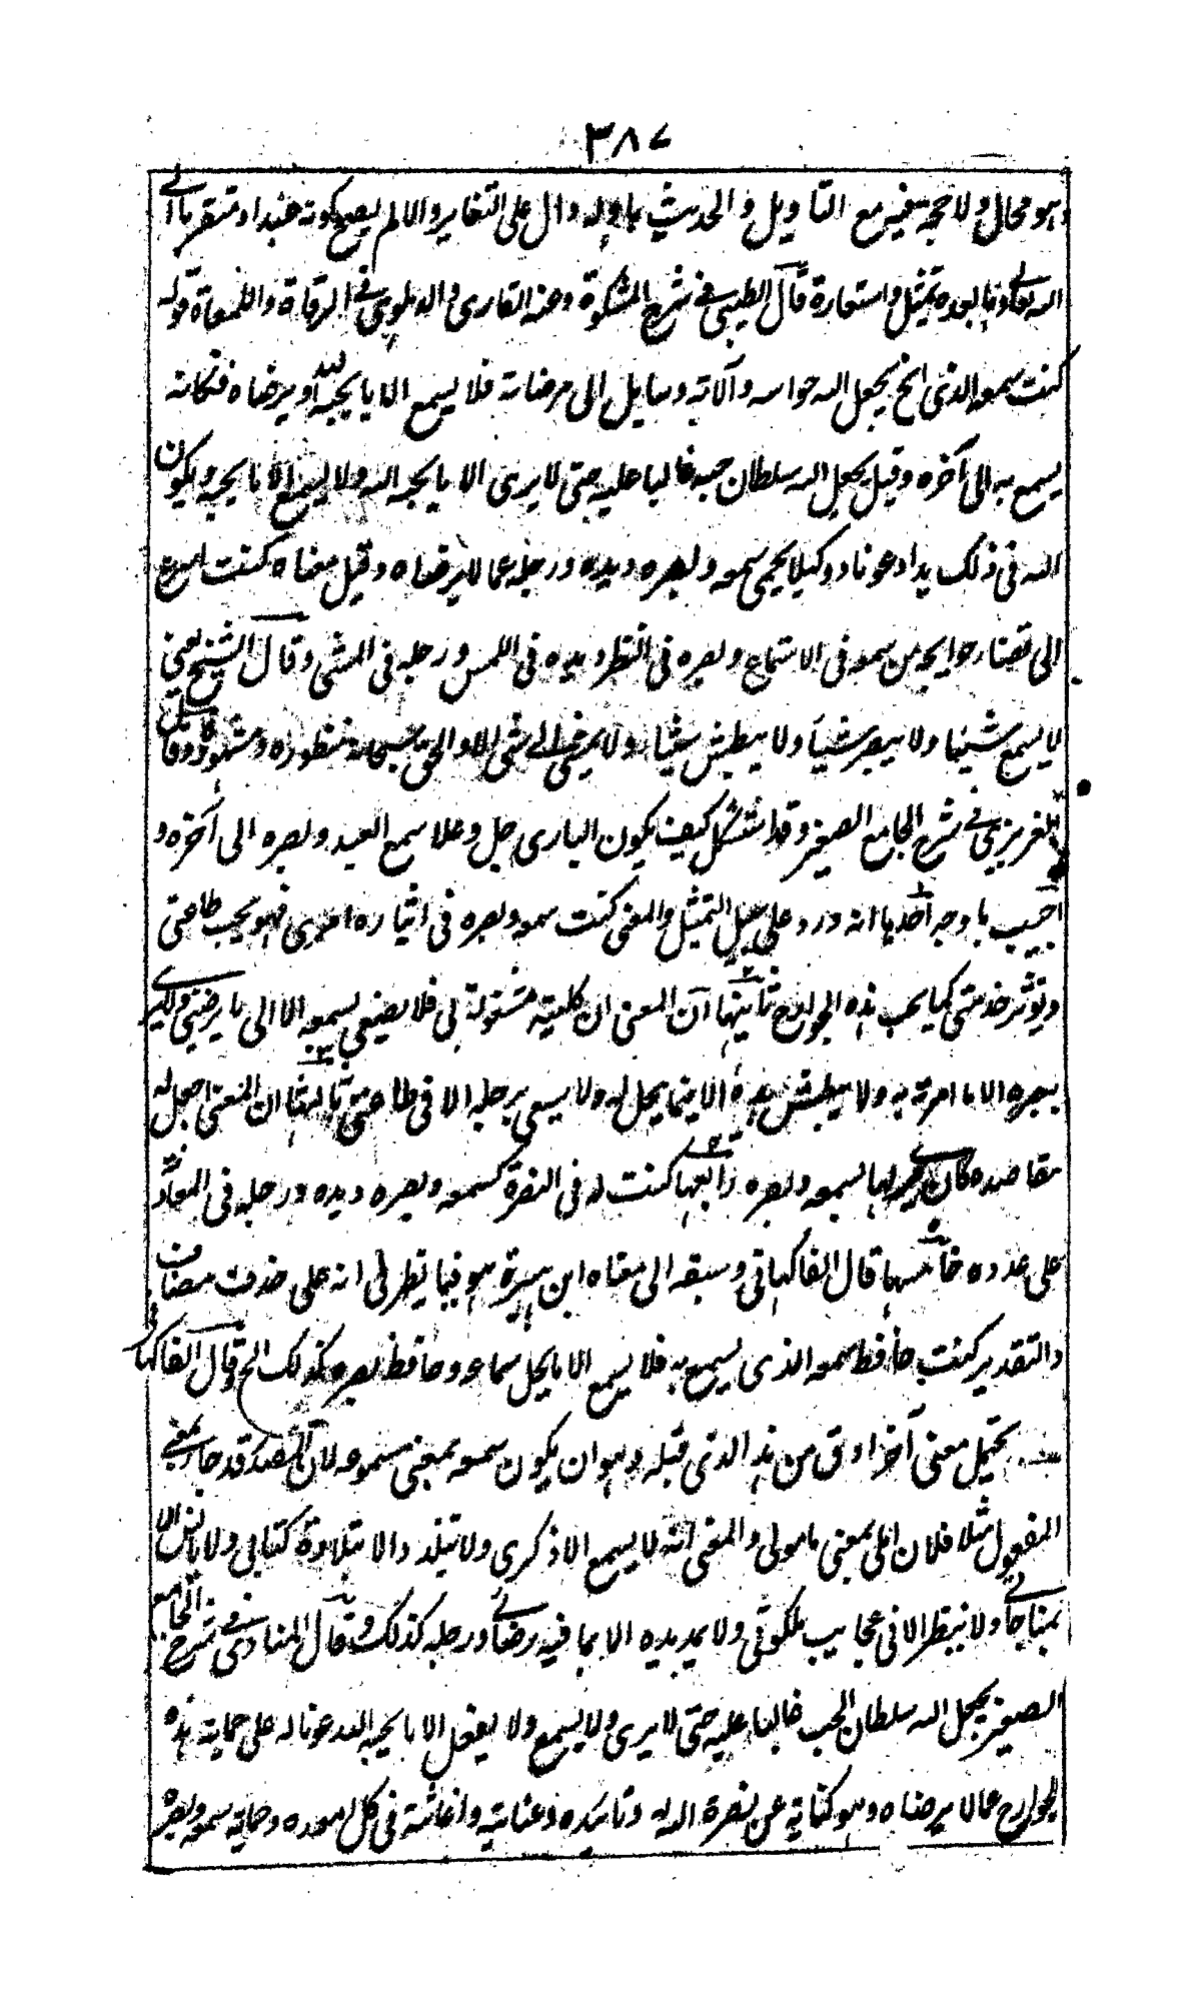 ٣٨٧
وهو محال ولا حجة فيه مع التأويل والحديث بأوله دال على التغاير والا لم يصح كونه عبدا ومتقربا الى
الله تعالى وما بعده تمثيل واستعارة قال الطيبى فى شرح المشكوة وعنه القارى والدهلوى فى المرقاة واللمعات قوله
كنت سمعه الذى الخ يجعل الله حواسه وآلاته وسايل الى مرضاته فلا يسمع الا ما يحبه الله ويرضاه فكانه
يسمع به الى آخره وقيل يجعل الله سلطان حبه غالبا عليه حتى لا يرى الا ما يحبه الله ولا يسمع الا ما يحبه ويكون
الله فى ذلك يدا وعونا ووكيلا يحمى سمعه وبصره ويده ورجله عما لا يرضاه وقيل معناه كنت اسرع
الى قضاء حوايجه من سمعه فى الاستماع وبصره فى النظر ويده فى اللمس ورجله فى المشى وقال الشيخ يعنى
لا يسمع شيئا ولا يبصر شيئا ولا يبطش شيئا ولا يمشى الى شى الا والحق سبحانه منظوره ومشهوده وقال
العزيزى فى شرح الجامع الصغير وقد استشكل كيف يكون البارى جل وعلا سمع العبد وبصره الى آخره و
اجيب باوجه احدها انه ورد على سبيل التمثيل والمعنى كنت سمعه وبصره فى ايثاره امرى فهو يحب طاعتى
ويوثر خدمتى كما يحب هذه الجوارح ثانيها ان المعنى ان كليته مشغولة بى فلا يصغى بسمعه الا الى ما يرضينى ولا يرى
ببصره الا ما امرته به ولا يبطش بيده الا فيما يحل له ولا يسعى برجله الا فى طاعتى ثالثها ان المعنى اجعل له
مقاصده كانه يراها بسمعه وبصره رابعها كنت له فى النصرة كسمعه وبصره ويده ورجله فى المعاونة
على عدوه خامسها قال الفاكهانى وسبقه الى معناه ابن هبيرة هو فيما يظهر لى انه على حذف مضاف
والتقدير كنت حافظ سمعه الذى يسمع به فلا يسمع الا ما يحل سماعه وحافظ بصره كذلك الخ وقال الفاكهانى
يحتمل معنى آخر ادق من هذا الذى قبله وهو ان يكون سمعه بمعنى مسموعه لان المصدر قد جاء بمعنى
المفعول مثلا فلان املى بمعنى مامولى والمعنى انه لا يسمع الا ذكرى ولا يتلذذ الا بتلاوة كتابى ولا يانس الا
بمناجاتى ولا ينظر الا فى عجايب ملكوتى ولا يمد يده الا بما فيه رضائى ورجله كذلك وقال المناوى فى شرح الجامع
الصغير يجعل الله سلطان الحب غالبا عليه حتى لا يرى ولا يسمع ولا يفعل الا ما يحبه الله عونا له على حماية هذه
الجوارح عما لا يرضاه وهو كناية عن نصرة الله له وتاييده وعنايته واغاثته فى كل اموره وحماية سمعه وبصره